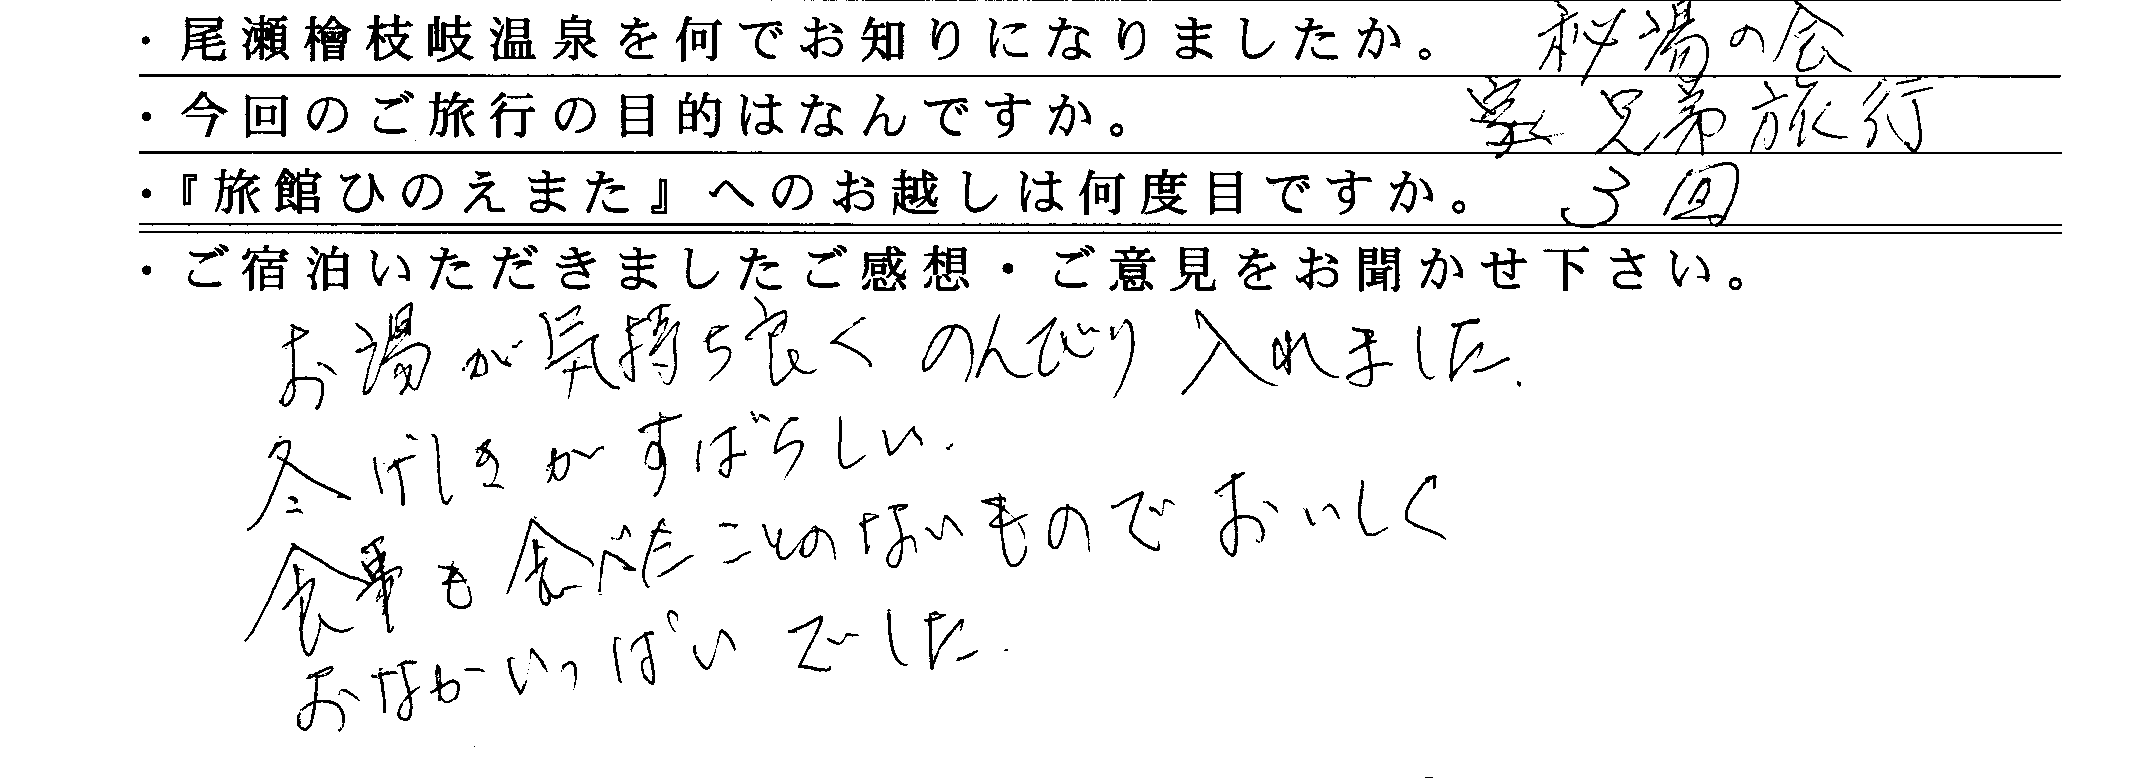 ・尾瀬檜枝岐温泉を何でお知りになりましたか。 秘湯の会
・今回のご旅行の目的はなんですか。 兄弟旅行
・『旅館ひのえまた』へのお越しは何度目ですか。 3回
・ご宿泊いただきましたご感想・ご意見をお聞かせ下さい。
お湯が気持ち良くのんびり入れました.
冬げしきがすばらしい.
食事も食べたことのないものでおいしく
おなかいっぱいでした.